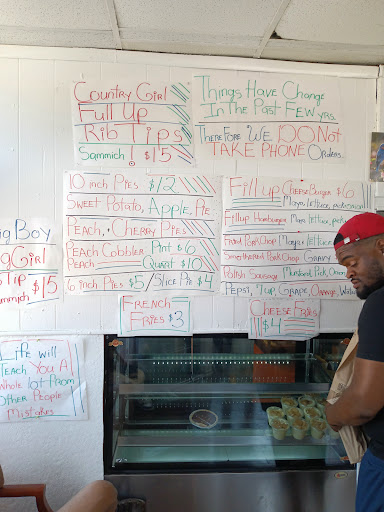 Country Girl
Full Up
Rib Tips
Sammich $15
Things Have Change
In The Past Few yrs.
Therefore We DO Not
TAKE PHONE Orders.
10 inch Pies $12
Sweet Potato, Apple, Pie
Peach, Cherry Pies
Peach Cobbler Pint $6
Peach Quart $10
6 inch Pies $5/Slice Pie $4
Fill up Cheese Burger $6
Mayo, lettuce,
Fillup Hamburger Mayo lettuce,
Fried Pork Chop Mayo lettuce
Smothered Pork Chop
Polish Sausage Mustard, Pork, Onion
Pepsi, 7up, Grape, Orange,
Big Boy
Girl
Tip $15
Sammich
French
Fries $3
Cheese Fries
$4
Life will
Teach You A
Whole lot From
Other People
Mistakes